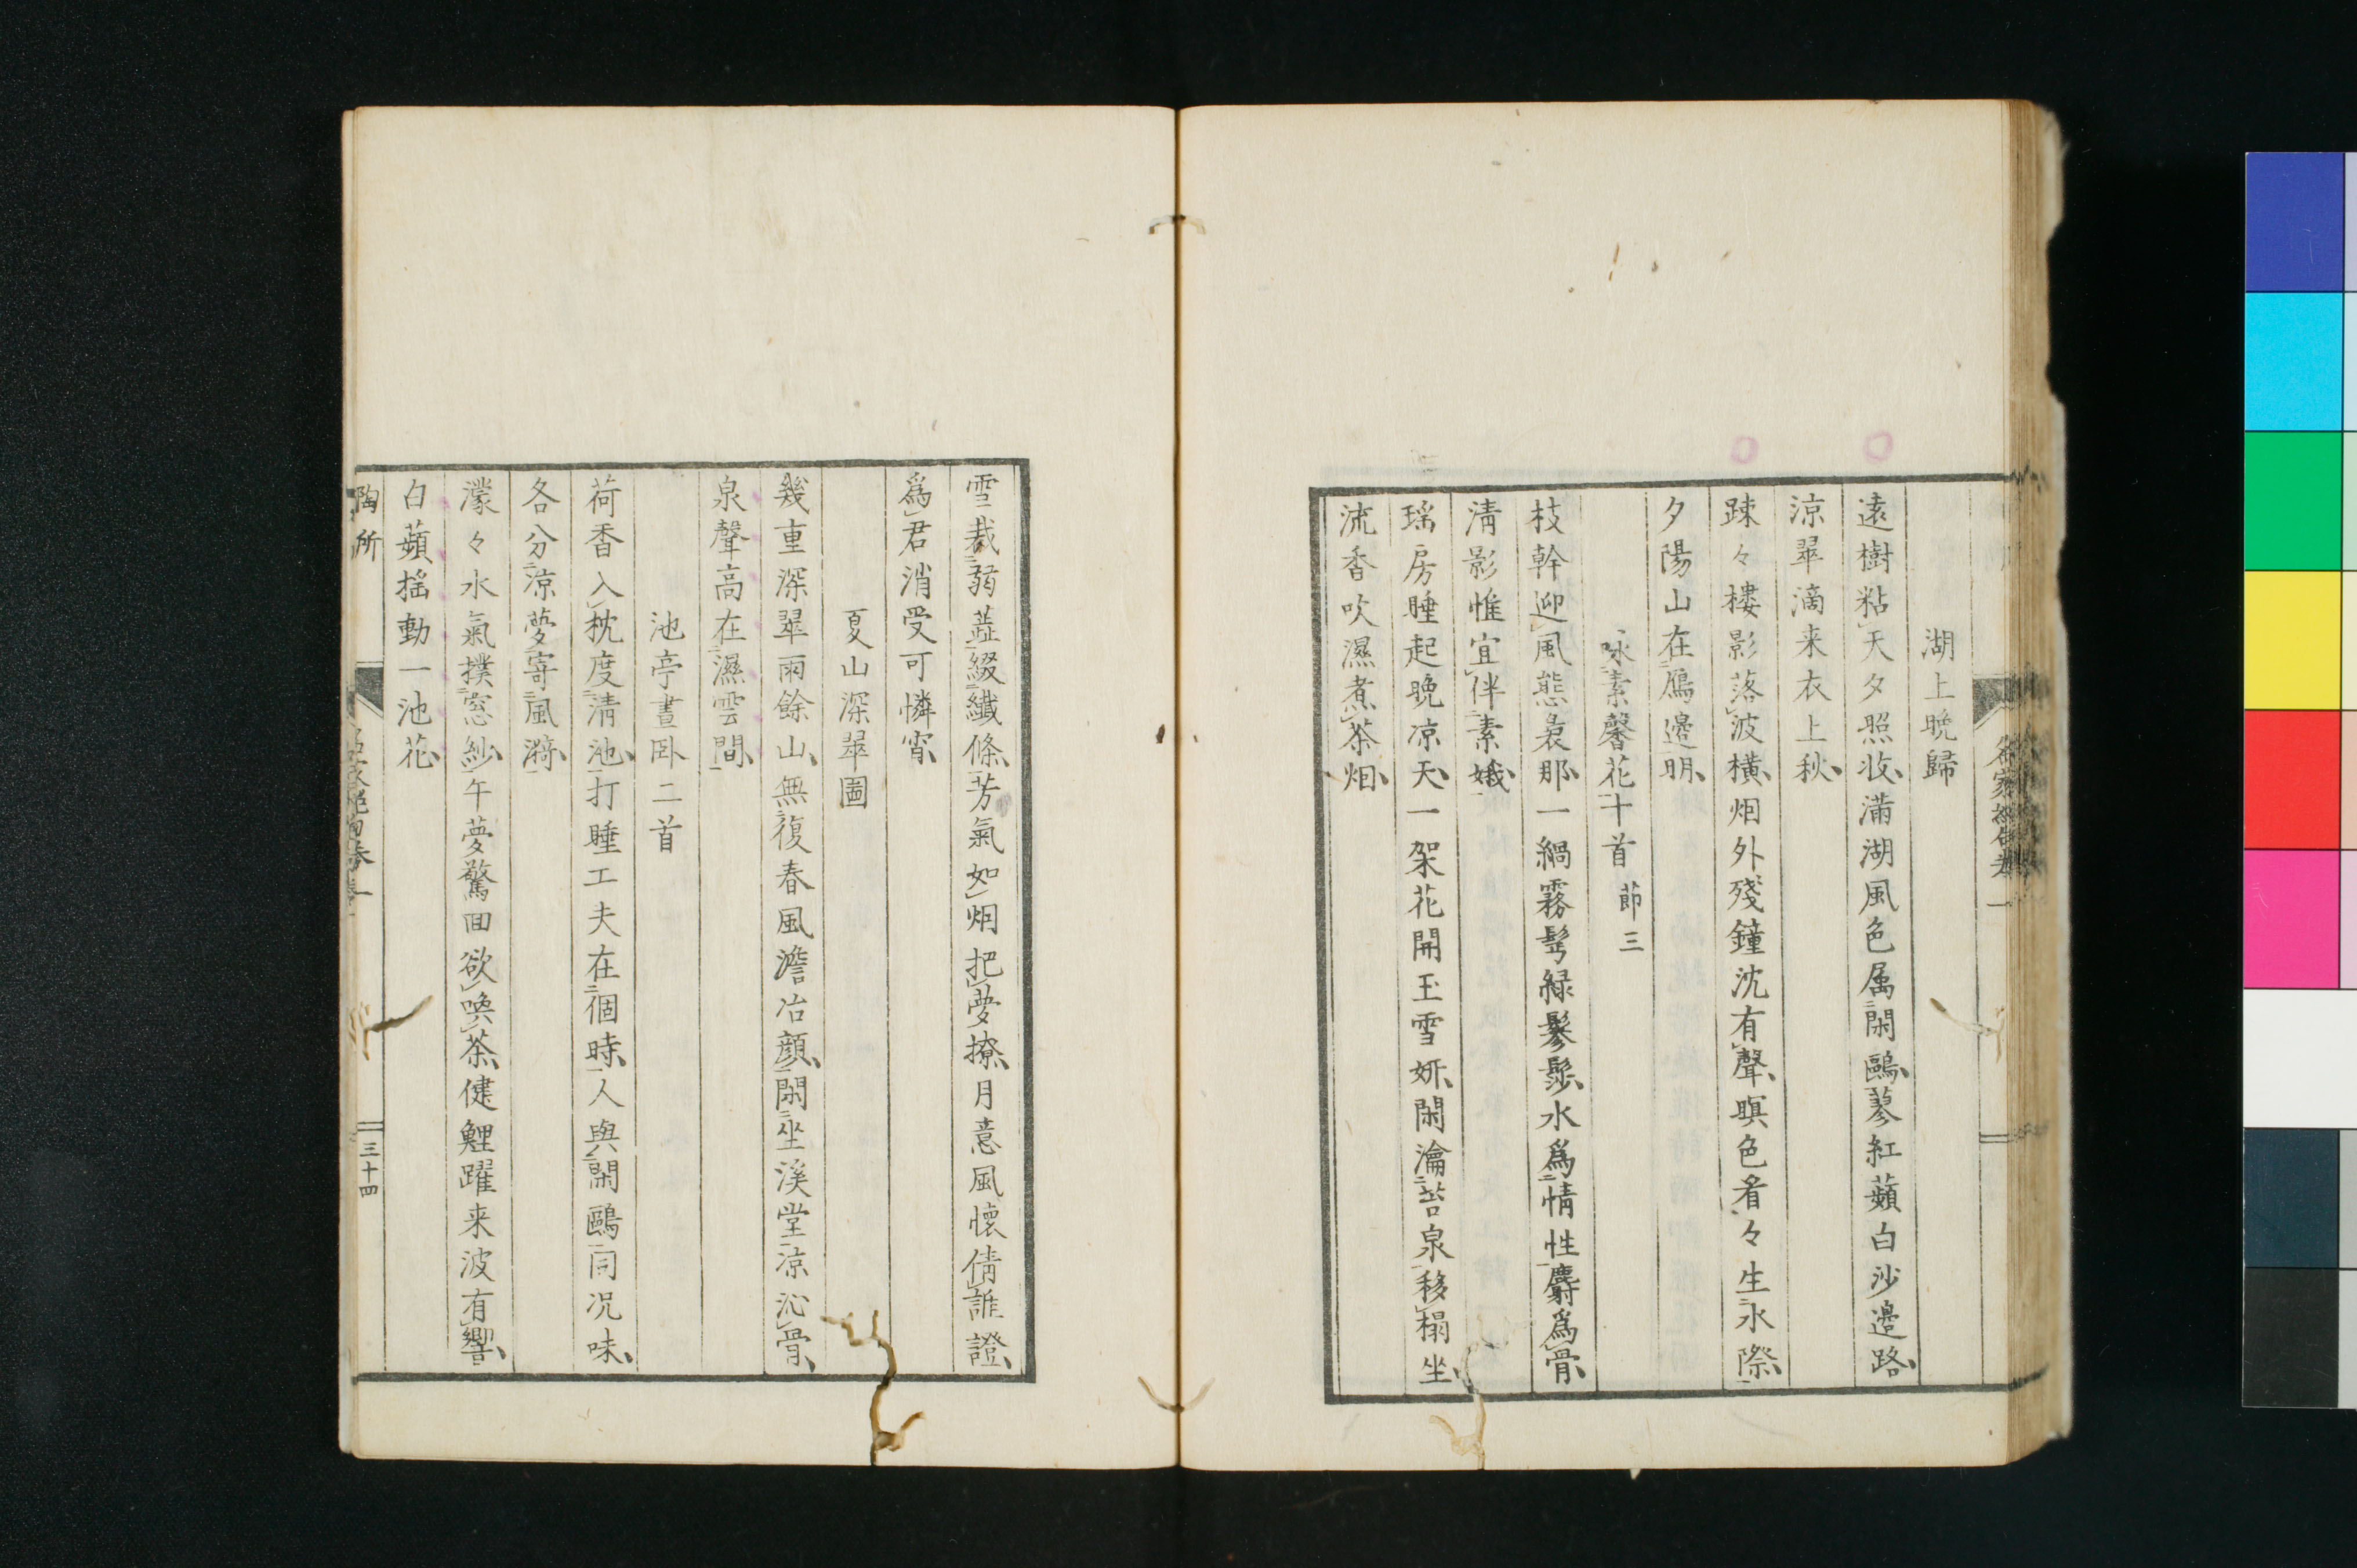 湖上晩歸
遠樹粘天夕照收滿湖風色属閑鷗蓼紅蘋白沙邊路
涼翠滴来衣上秋
踈々樓影落波橫烟外殘鐘沈有聲暝色看々生水際
夕陽山在鴈邊明
咏素馨花十首 節三
枝幹迎風態裊那一緺霧髩緑鬖髿水為情性麝為骨
淸影惟宜伴素娥
瑤房睡起晚凉天一架花開玉雪妍閑瀹苦泉移榻坐
流香吹濕煮茶烟
雪裁弱蕋綴纖條芳氣如烟把夢撩月意風懷倩誰證
爲君消受可憐宵
夏山深翠圖
幾重深翠雨餘山無復春風澹冶顔閑坐溪堂涼沁骨
泉聲高在濕雲間
池亭晝臥二首
荷香入枕度淸池打睡工夫在個時人與閑鷗同况味
各分凉夢寄風漪
濛々水氣撲窓紗午夢驚回欲喚茶健鯉躍来波有響
白蘋揺動一池花
陶所
三十四